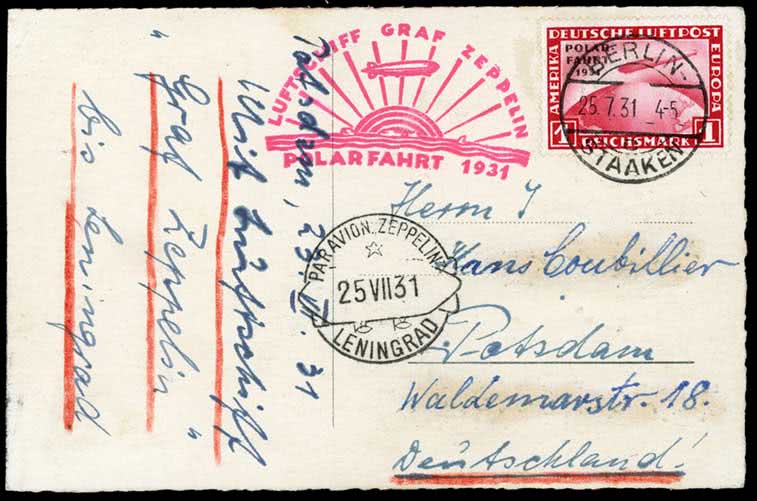 Potsdam, 25. VII. 31
Mit Luftschiff
"Graf Zeppelin"
bis Leningrad
LUFTSCHIFF GRAF ZEPPELIN
POLARFAHRT 1931
DEUTSCHE LUFTPOST
AMERIKA
EUROPA
POLAR-
FAHRT
1931
1 REICHSMARK 1
BERLIN-
25.7.31 4-5
STAAKEN
PAR AVION ZEPPELIN
25 VII 31
LENINGRAD
Herrn
Hans Coubillier
Potsdam
Waldemarstr. 18.
Deutschland!